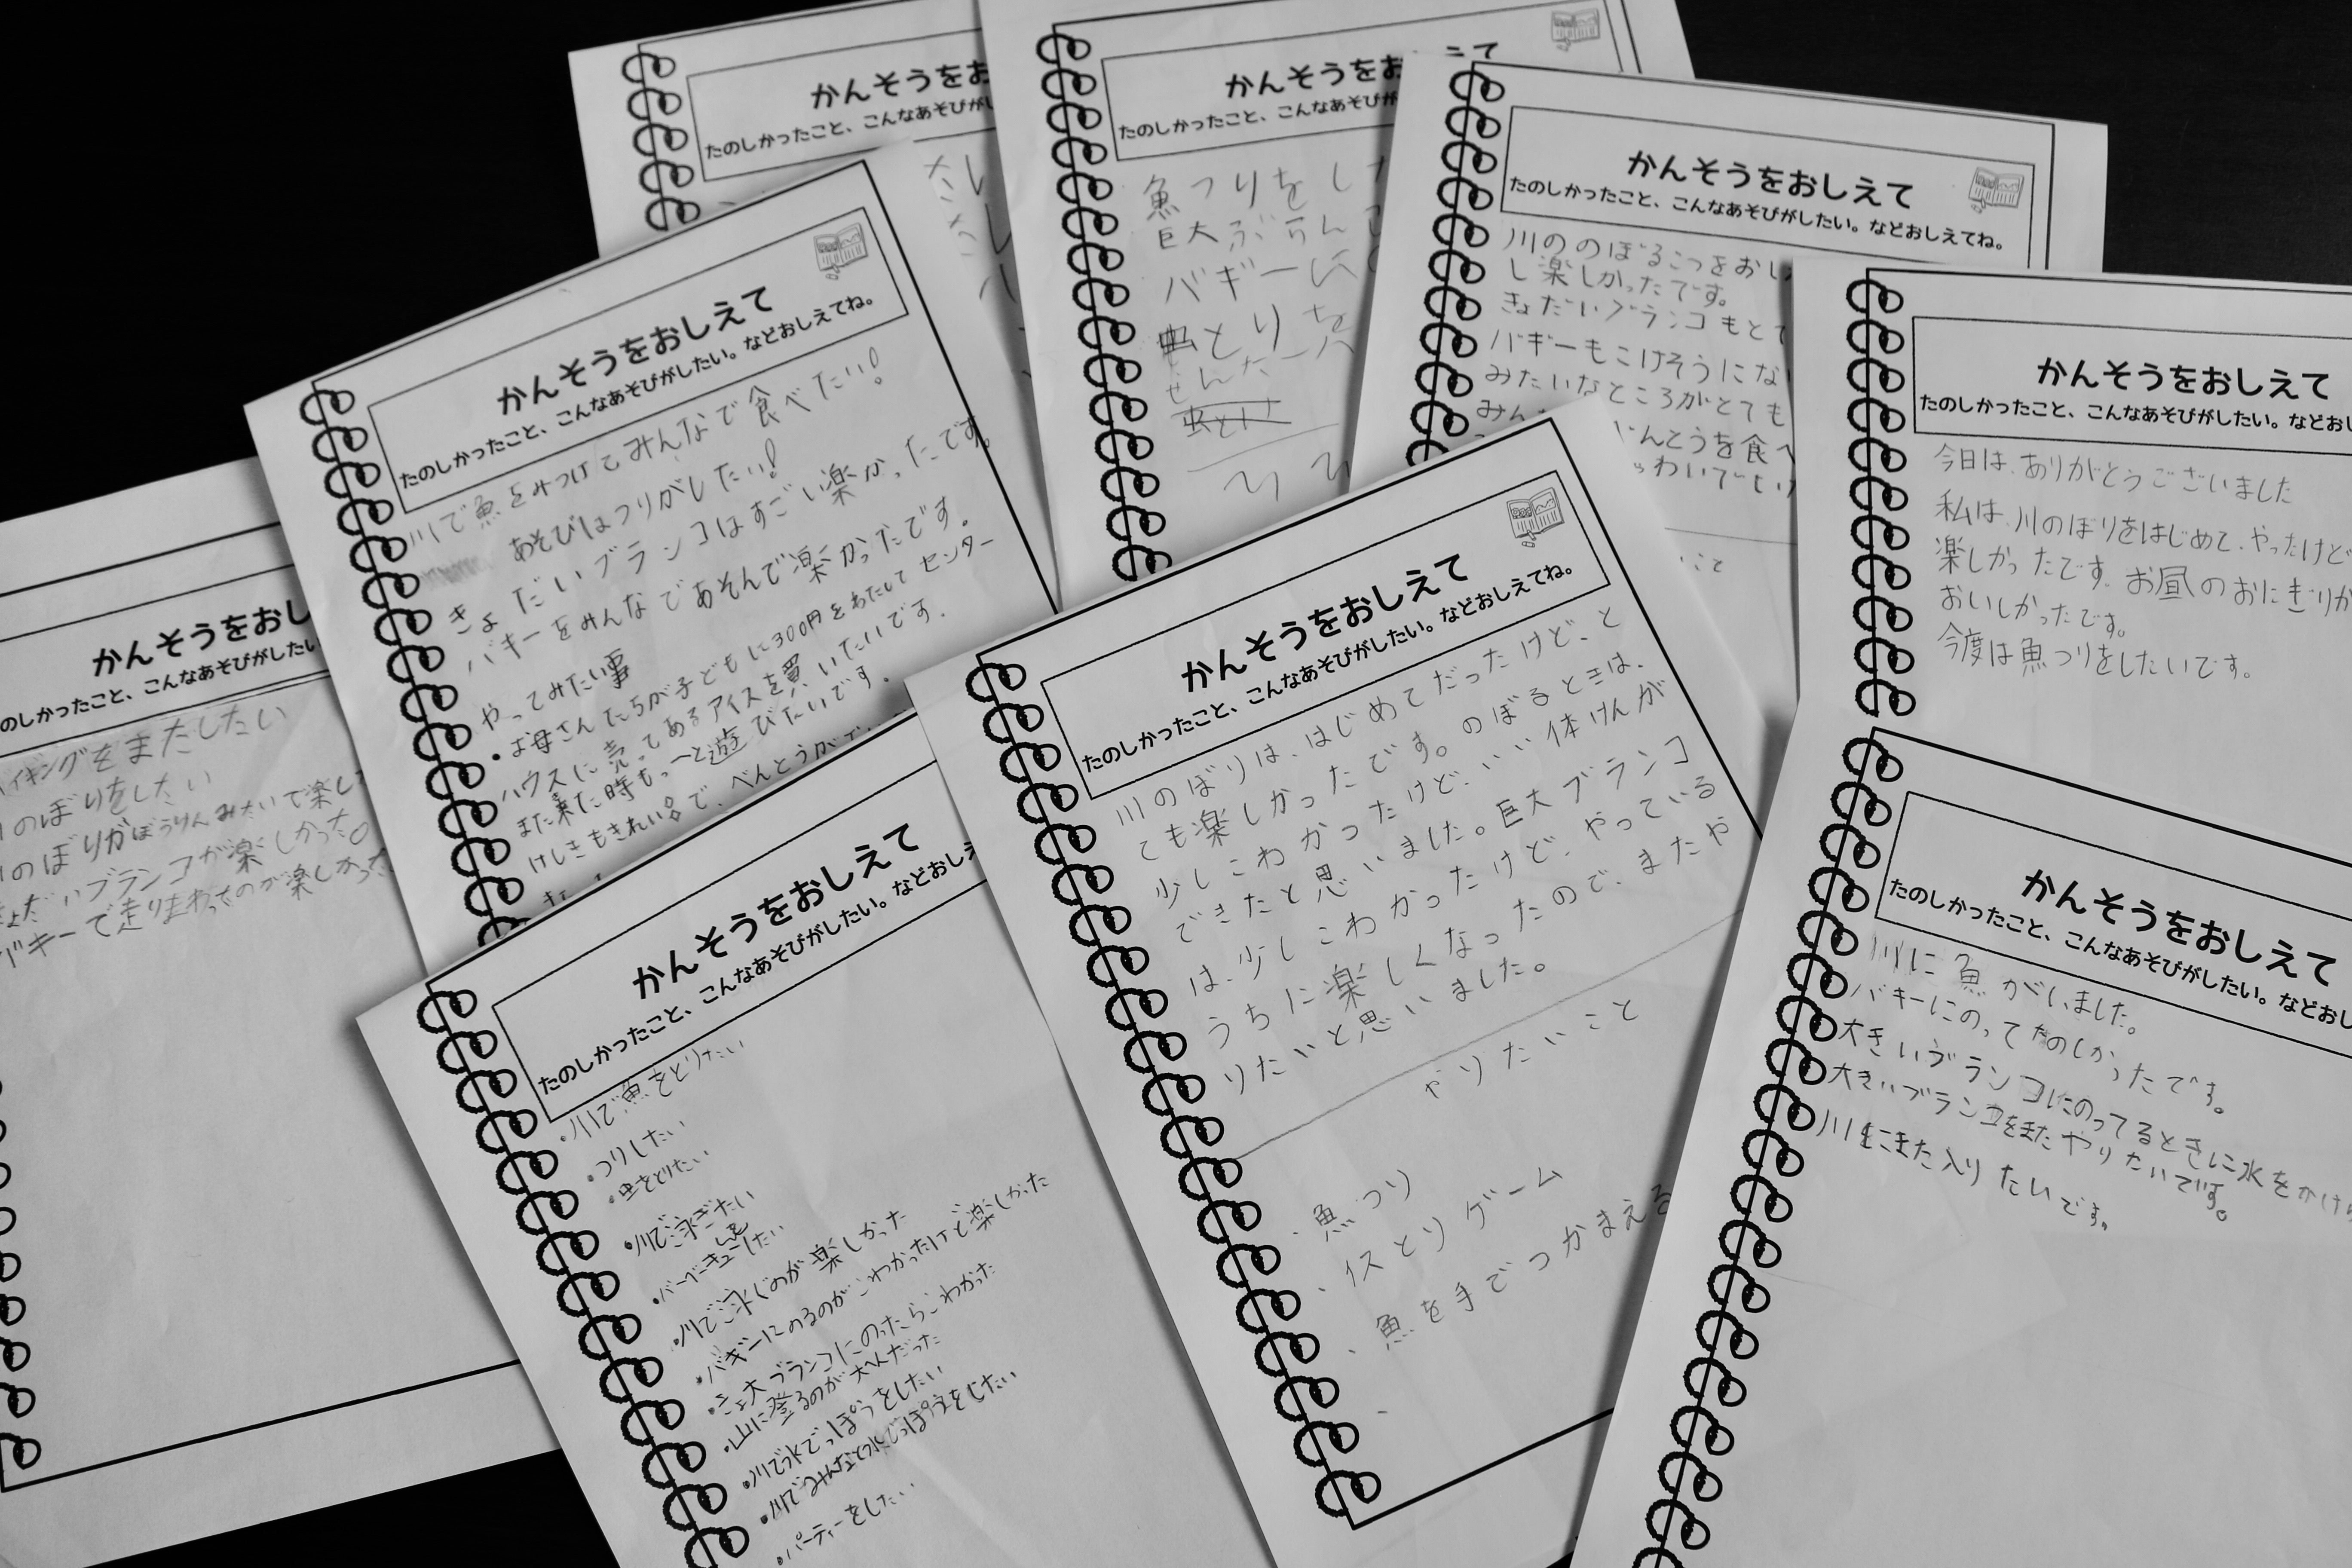 かんそうをお
たのしかったこと、こんなあそびがし
かんそうをお
たのしかったこと、こんなあそびが
魚つりをした
巨大ぶらんこ
バギーに
虫とりを
こて
かんそうをおしえて
たのしかったこと、こんなあそびがしたい。などおしえてね。
川ののぼるこつをおし
し楽しかったです。
きょだいブランコもとて
バギーもこけそうにな
みたいなところがとても
んとうを食べ
かんそうをおしえて
たのしかったこと、こんなあそびがしたい。などおし
今日は、ありがとうございました
私は、川のぼりをはじめて、やったけど
楽しかったです。お昼のおにぎりが
おいしかったです。
今度は魚つりをしたいです。
かんそうをおしえて
たのしかったこと、こんなあそびがしたい。などおしえてね。
川で魚をみつけてみんなで食べたい!
あそびはつりがしたい!
きょだいブランコはすごい楽かったです。
バギーをみんなであそんで楽かったです。
やってみたい事
・お母さんたちが子どもに300円をわたして センター
ハウスに売ってあるアイスを買いたいです。
また来た時も、もっと遊びたいです。
けしきもきれいで、べんとうが
かんそうをおし
のしかったこと、こんなあそびがしたい
イキングをまたしたい
のぼりをしたい
のぼりがぼうけんみたいで楽し
ょだいブランコが楽しかった。
バギーで走りまわったのが楽しかった
かんそうをおしえて
たのしかったこと、こんなあそびがしたい。などおしえ
・川で魚をとりたい
・つりしたい
・虫をとりたい
・川で泳ぎたい
・バーベキューしたい
・川で泳じのが楽しかった
・バギーにのるのがこわかったけど楽しかった
・きょ大ブランコにのったらこわかった
・山に登るのが大へんだった
・川で水でっぽうをしたい
・川でみんなと水でっぽうをしたい
・パーティーをしたい
かんそうをおしえて
たのしかったこと、こんなあそびがしたい。などおしえてね。
川のぼりは、はじめてだったけど、と
ても楽しかったです。のぼるときは、
少しこわかったけど、いい体けんが
できたと思いました。巨大ブランコ
は、少しこわかったけど、やっている
うちに楽しくなったので、またや
りたいと思いました。
やりたいこと
・魚つり
・イスとりゲーム
・魚を手でつかまえる
かんそうをおしえて
たのしかったこと、こんなあそびがしたい。などおし
川に魚がいました。
バギーにのってたのしかったです。
大きいブランコにのってるときに水をかけ
大きいブランコをまたやりたいです。
川にまた入りたいです。